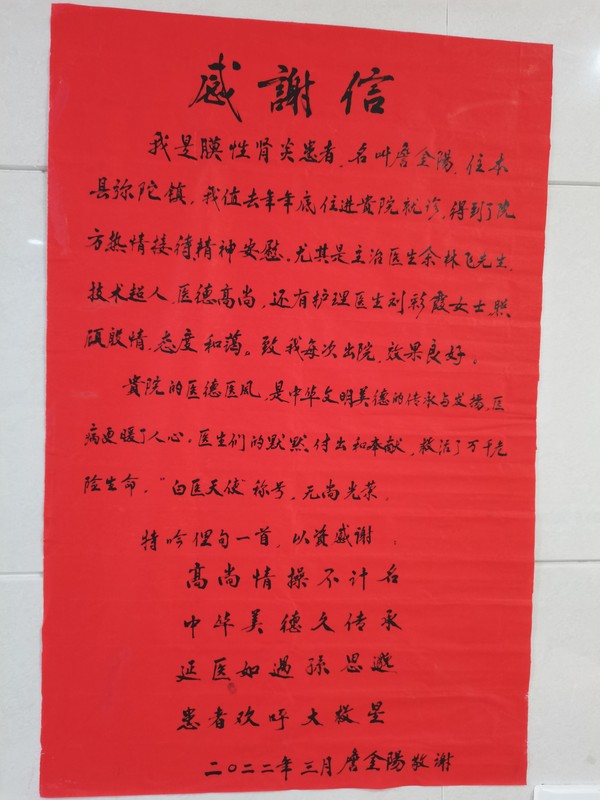 感謝信
我是膜性肾炎患者,名叫詹全陽,住本
县弥陀镇,我值去年年底住进貴院就诊,得到了院
方热情接待精神安慰,尤其是主治医生余林飞先生,
技术超人,医德高尚,还有护理医生刘彩霞女士,照
顾殷情,态度和蔼。致我每次出院,效果良好。
貴院的医德医风,是中华文明美德的传承与发揚,医
病更暖了人心,医生们的默默付出和奉献,救活了万千危
险生命,“白医天使”称号,无尚光荣,
特吟俚句一首,以资感谢,
高尚情操不计名
中华美德久传承
延医如遇孫思邈
患者欢呼大救星
二〇二二年三月詹全陽敬谢